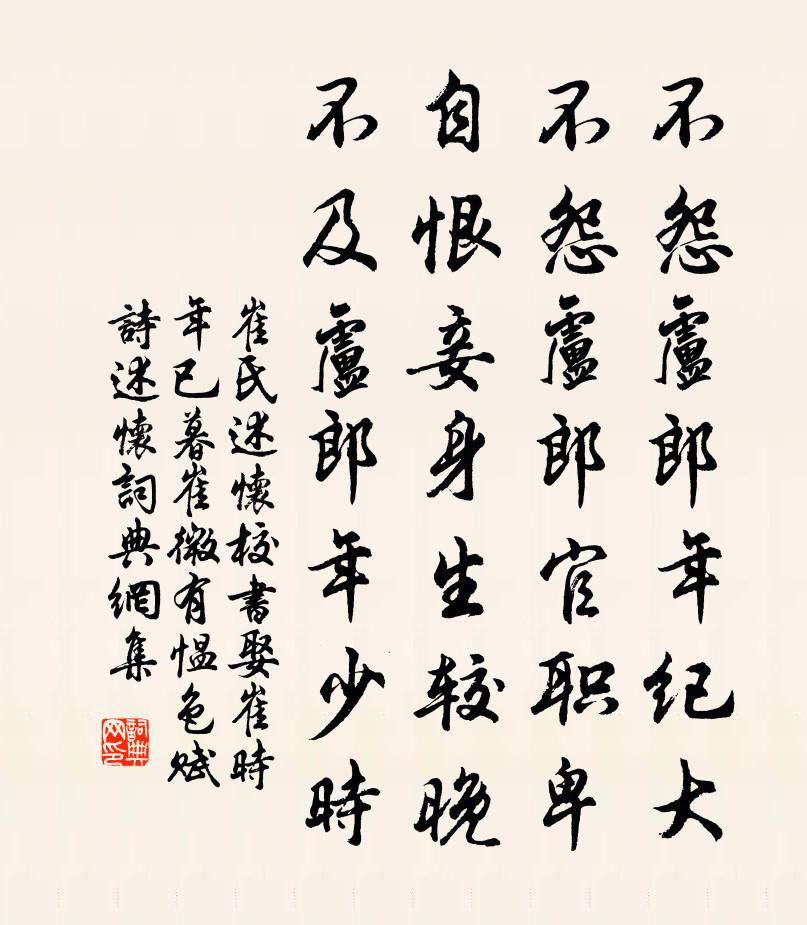 不怨盧郎年纪大
不怨盧郎官职卑
自恨妾身生较晚
不及盧郎年少時
崔氏述懷校書娶崔時
年已暮崔微有愠色赋
詩述懷詞典網集
詞典
网印